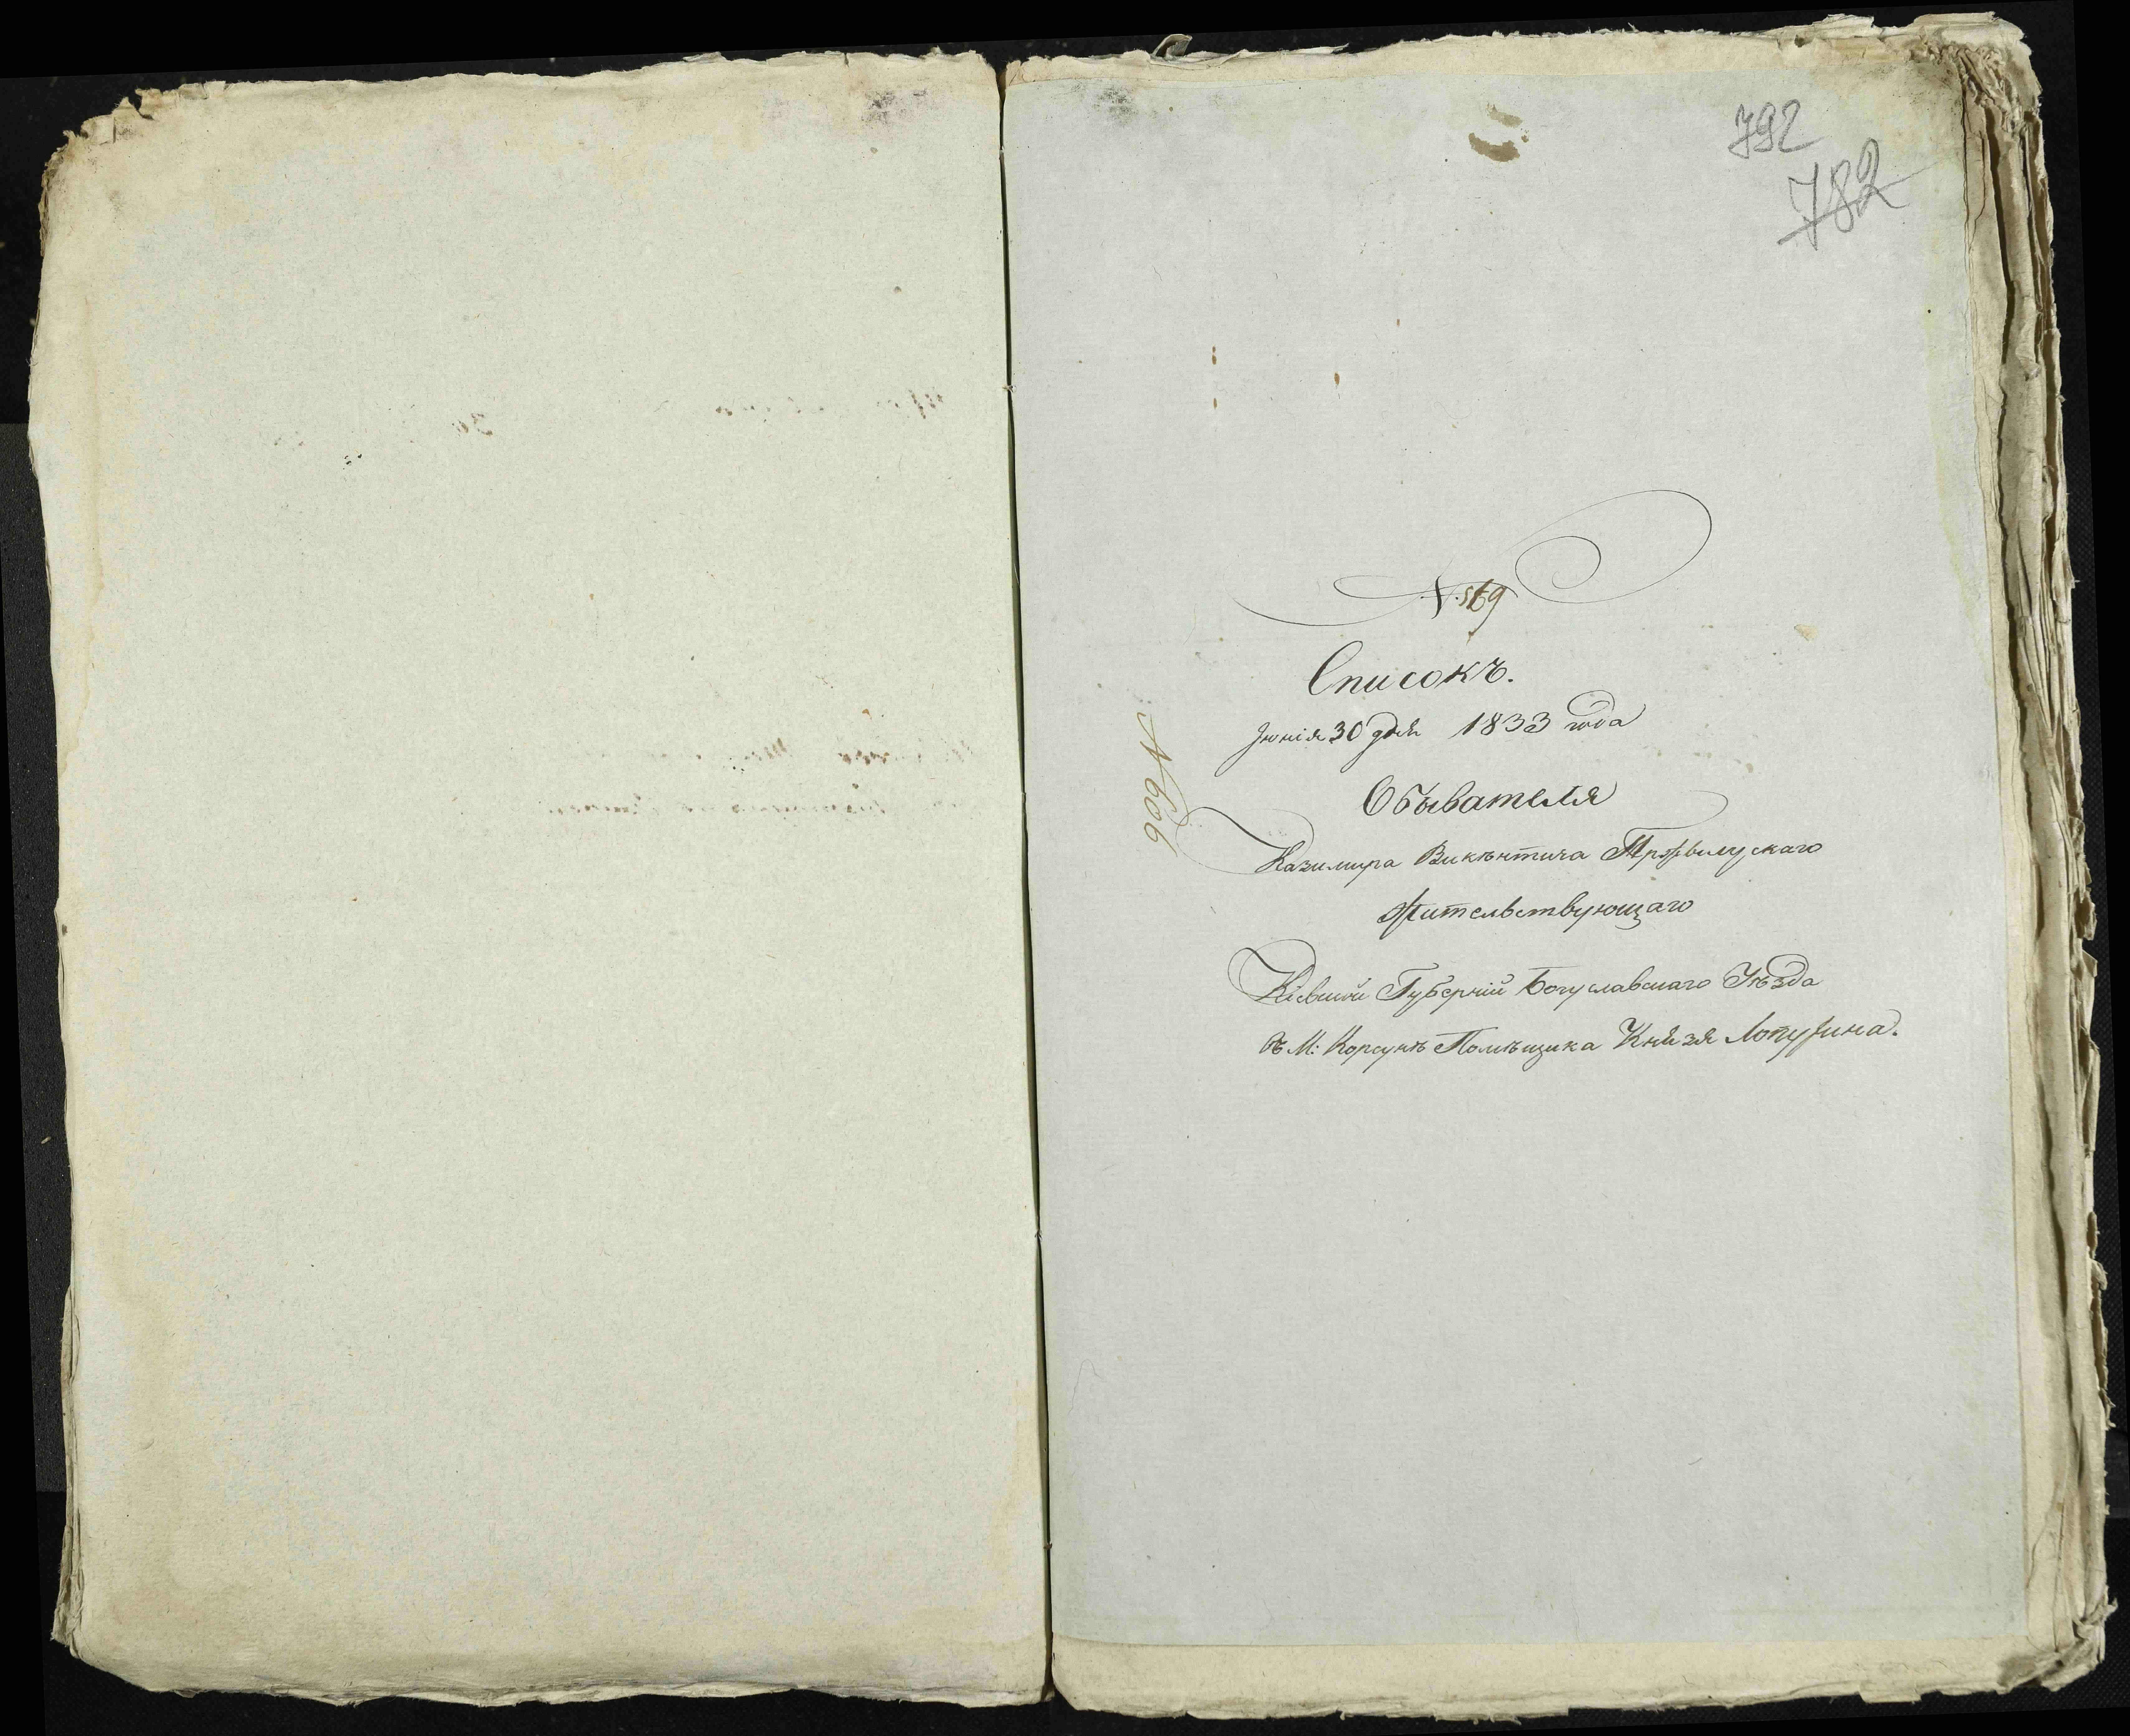 792
782
N. 569
Списокъ.
Іюнія 30 дня 1833 года
Обывателя
N 606
Казимира Викентича
Жительствующаго
Кіевской Губерніи Богуславскаго Уѣзда
въ М: Корсунѣ Помѣщика Князя Лопухина.